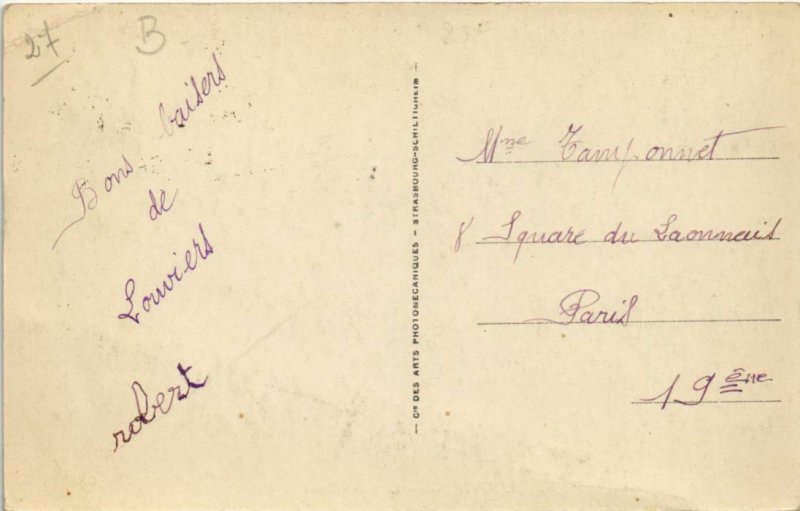 27
B
Bons baisers
de
Louviers
robert
— Cie DES ARTS PHOTOMECANIQUES — STRASBOURG-SCHILTIGHEIM —
Mme Tamponnet
8 Square du Laonnais
Paris
19ème